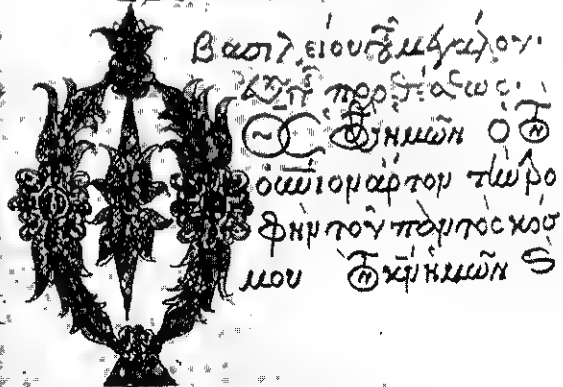 Βασιλείου τοῦ μεγάλου·
Εὐχὴ προθέσεως·
Ὁ Θς ὁ Θς ἡμῶν ὁ τὸν
οὐνιον ἄρτον τὴν τρο
φὴν τοῦ παντὸς κόσ
μου τὸν κν ἡμῶν ϛ